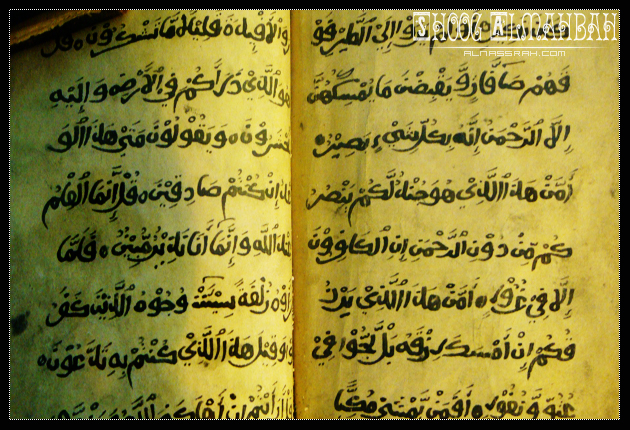 Shoog Almahbah
ALNASSRAH.COM
وا إلى الطير فو
فهم صافات ويقبضن ما يمسكهن
إلا الرحمن إنه بكل شيء بصير
أمن هذا الذي هو جند لكم ينصر
كم من دون الرحمن إن الكافرون
إلا في غرور أمن هذا الذي يرز
قكم إن أمسك رزقه بل لجوا في
عتو ونفور أفمن يمشي مكبا
والأفئدة قليلا ما تشكرون قل
هو الذي ذرأكم في الأرض وإليه
تحشرون ويقولون متى هذا الو
عد إن كنتم صادقين قل إنما العلم
عند الله وإنما أنا نذير مبين فلما
رأوه زلفة سيئت وجوه الذين كفر
وا وقيل هذا الذي كنتم به تدعون